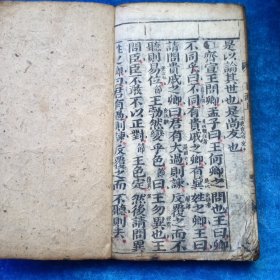 是以論其世也是尚友也
○齊宣王問卿孟子曰王何卿之問也王曰卿
不同乎曰不同有貴戚之卿有異姓之卿王曰
請問貴戚之卿曰君有大過則諫反覆之而不
聽則易位王勃然變乎色曰王勿異也王
問臣臣不敢不以正對王色定然後請問異
姓之卿曰君有過則諫反覆之而不聽則去